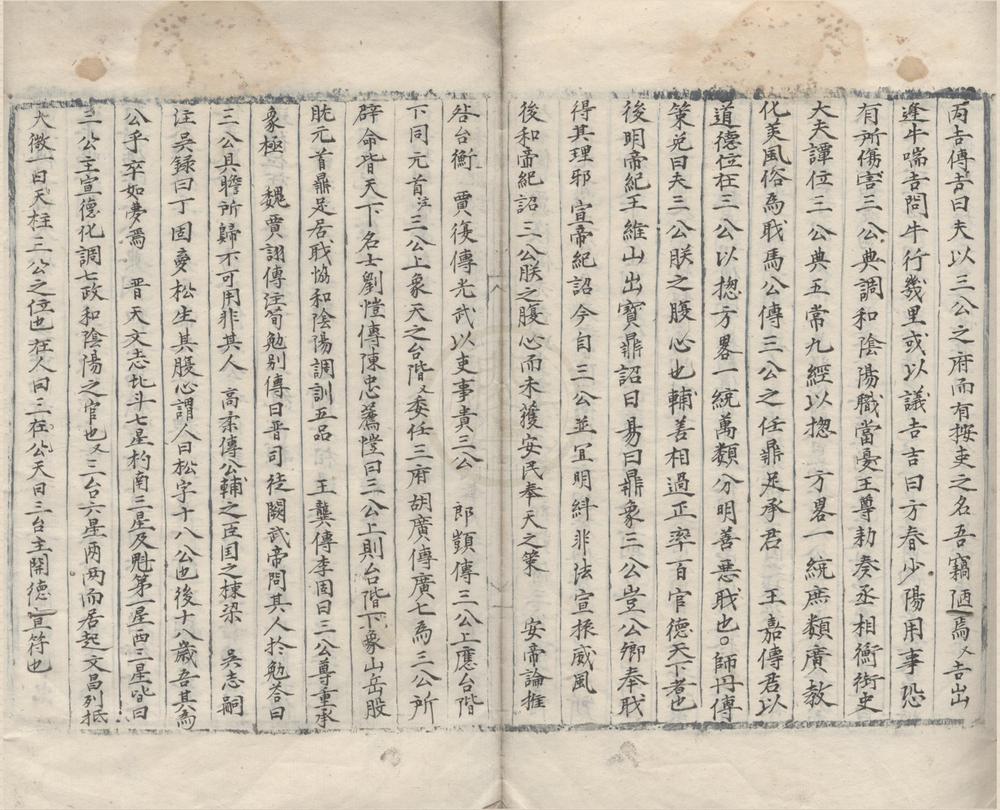 丙吉傳吉曰夫以三公之府而有按吏之名吾竊陋焉又吉出
逢牛喘吉問牛行幾里或以議吉吉曰方春少陽用事恐
有所傷害三公典調和陰陽職當憂王尊劾奏丞相衡御史
大夫譚位三公典五常九經以揔 方畧一統庶類廣教
化美風俗爲职馬公傳三公之任鼎足承君 王嘉傳君以
道德位在三公以揔方畧一統萬類分明善惡职也○師丹傳
策免曰夫三公朕之腹心也輔善相過正率百官德天下者也
後明帝紀王維山出寶鼎詔曰易曰鼎象三公豈公卿奉职
得其理邪 宣帝紀詔今自三公並冝明糾非法宣振威風
後和帝紀詔三公朕之腹心而未獲安民奉天之策 安帝論推
咎台衡 賈復傳光武以吏事責三公 郎顗傳三公上應台階
下同元首注三公上象天之台階又委任三府胡廣傳廣七為三公所
辟命皆天下名士劉愷傳陳忠薦愷曰三公上則台階下象山岳股
肱元首鼎足居职協和陰陽調訓五品 王龔傳李固曰三公尊重承
象極 魏賈詡傳注荀勉别傳曰晋司徒闕武帝問其人於勉荅曰
三公具瞻所歸不可用非其人 高柔傳公輔之臣国之棟梁 吳志嗣
注吳録曰丁固夢松生其腹心謂人曰松字十八公也後十八歲吾其為
公乎卒如夢焉 晋天文志北斗七星杓南三星及魁第一星西三星皆曰
三公主宣德化調七政和陰陽之官也又三台六星两两而居起文昌列抵
太微一曰天柱三公之位也在人曰三在公天曰三台主開德宣符也